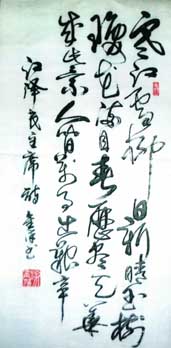 寒江雪柳日新晴玉树
琼花满目春历尽天华
成此景人间万事出艰辛
江泽民主席诗